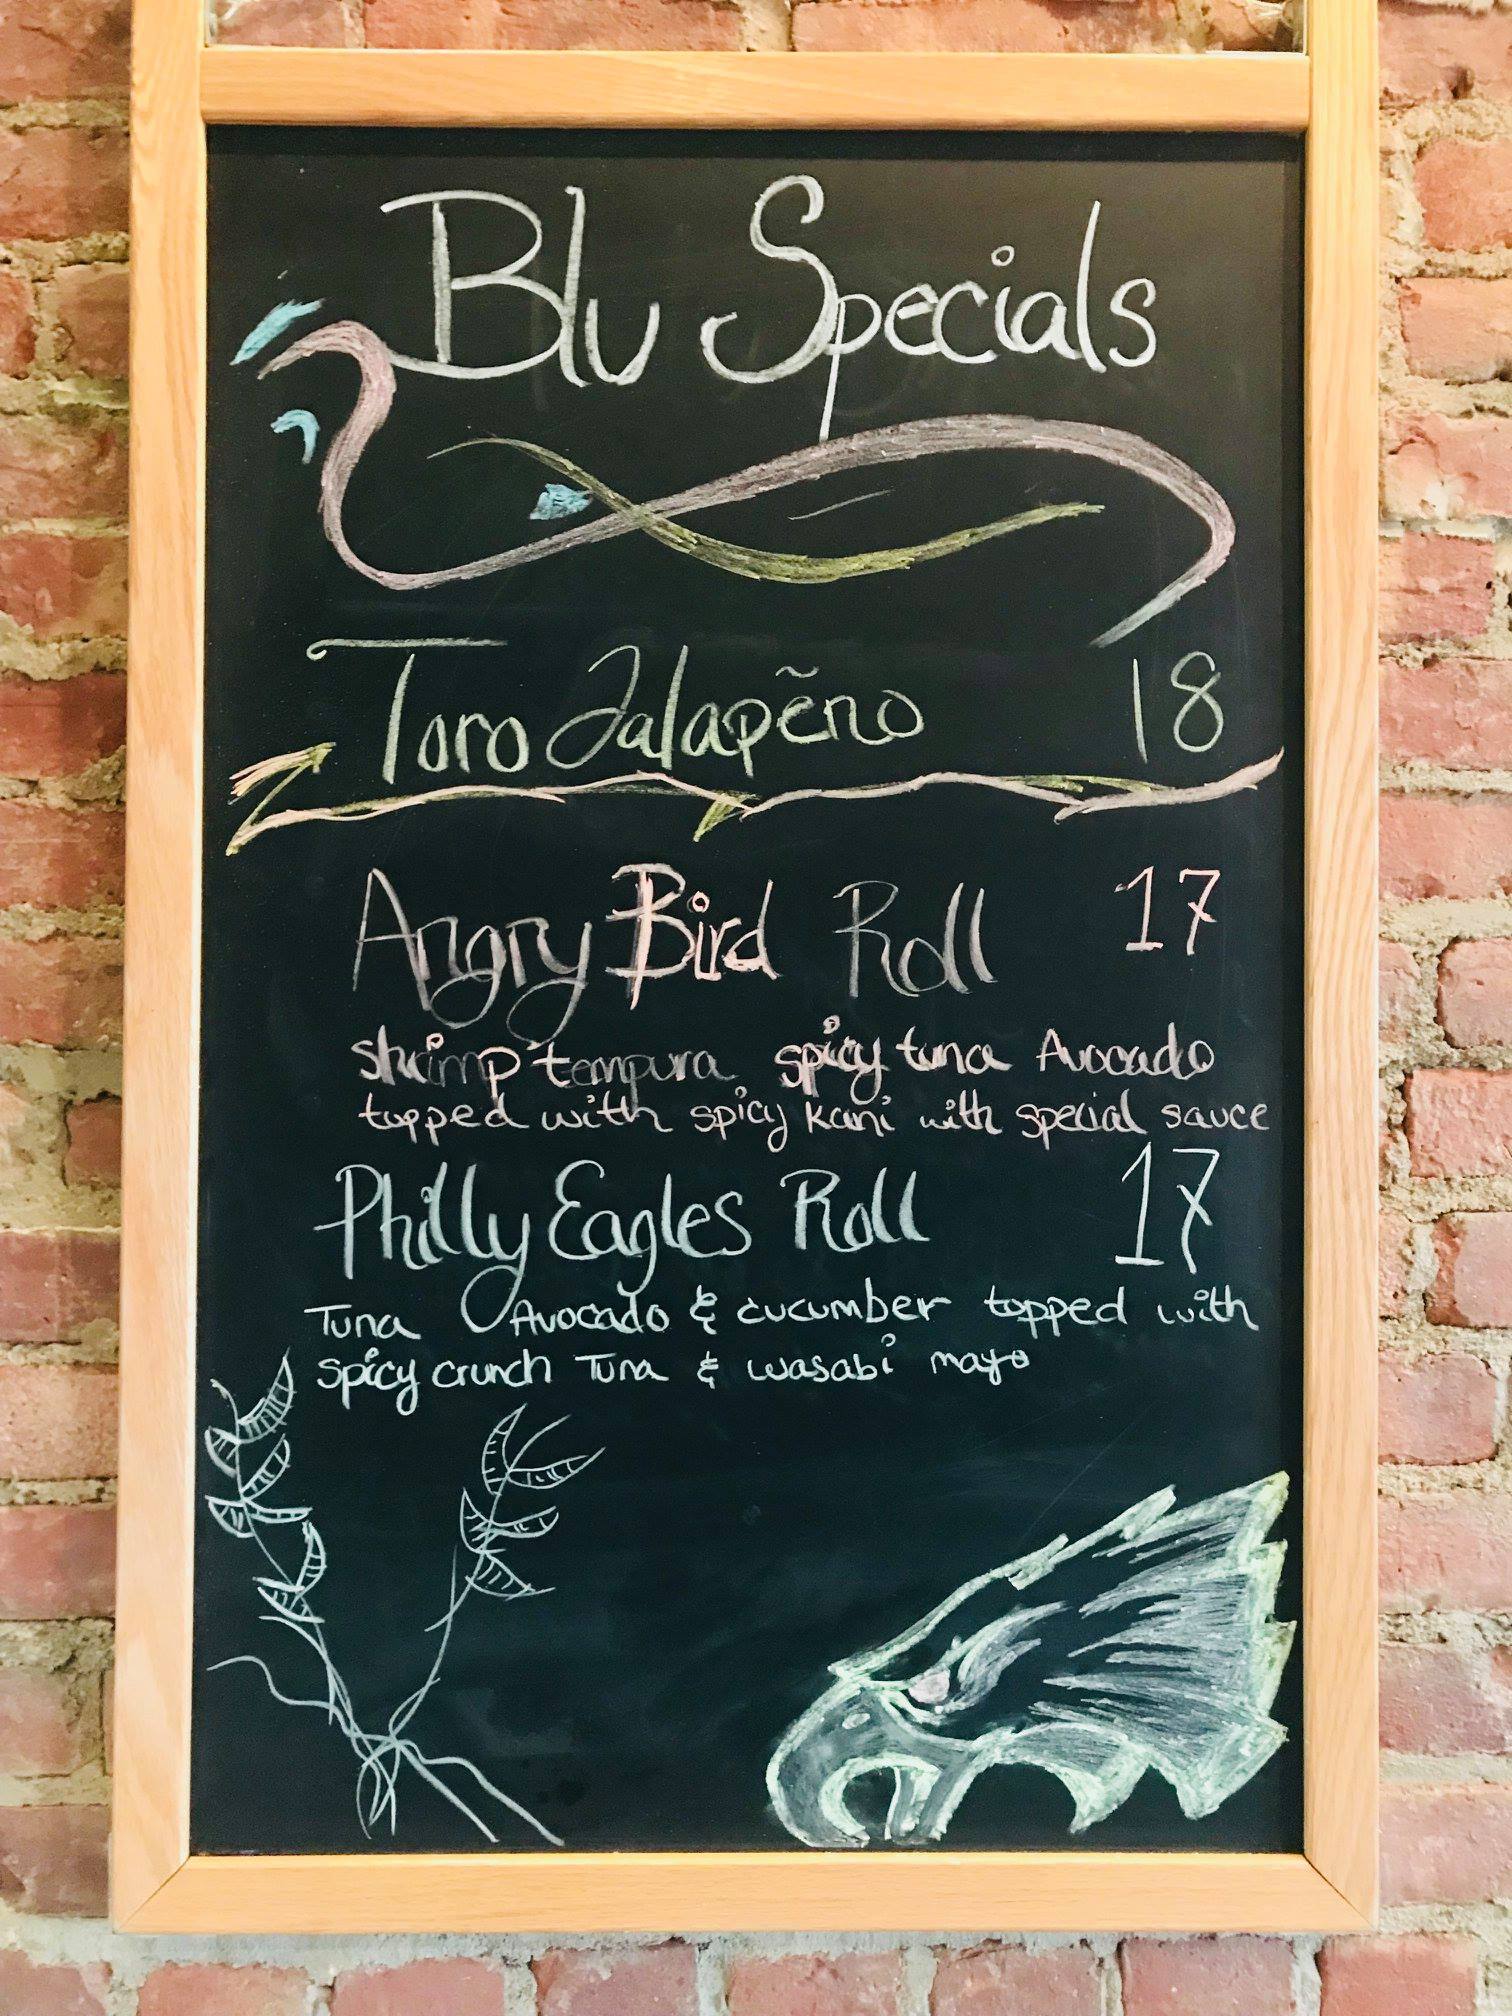 Blu Specials
Toro Jalapẽno 18
Angry Bird Roll 17
shrimp tempura, spicy tuna Avocado
topped with spicy Kani with special sauce
Philly Eagles Roll 17
Tuna Avocado & cucumber topped with
spicy crunch Tuna & wasabi mayo